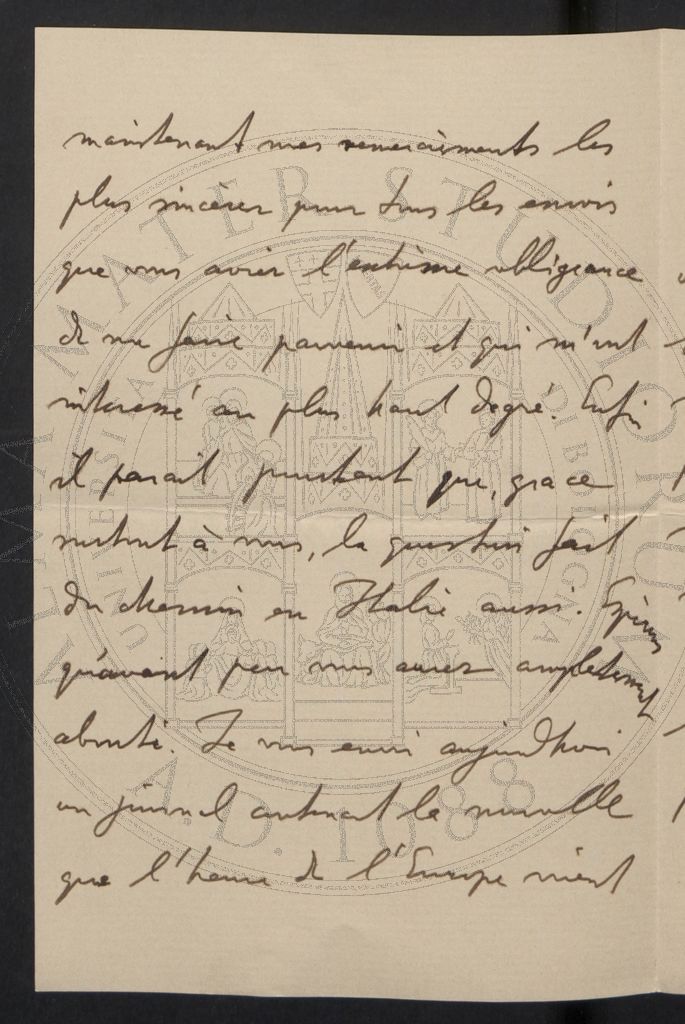 maintenant mes remerciements les
plus sincères pour tous les envois
que vous aviez l'extrème obligeance
de me faire parvenir et qui m'ont
interessé au plus haut degré. Enfin
il parait pourtant que, grace
surtout à vous, la question fait
du chemin en Italie aussi. Espérons
qu'avant peu vous aurez completement
abouti. Je vous envoi aujourdhoui
un journal contenant la nouvelle
que l'heure de l'Europe vient
ALMA MATER STUDIORUM
UNIVERSITÀ DI BOLOGNA
A.D. 1088